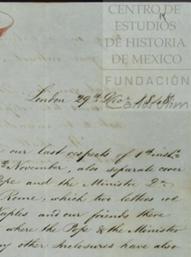 CENTRO DE
ESTUDIOS
DE HISTORIA
DE MEXICO
FUNDACIÓN
London 29th Nov. 1848
our last respects of 1st inst.
November, also separate cover
Pope and the Minister Dn.
Rome, which two letters we
Naples and our friends there
where the Pope & the Minister
my other inclosures have also